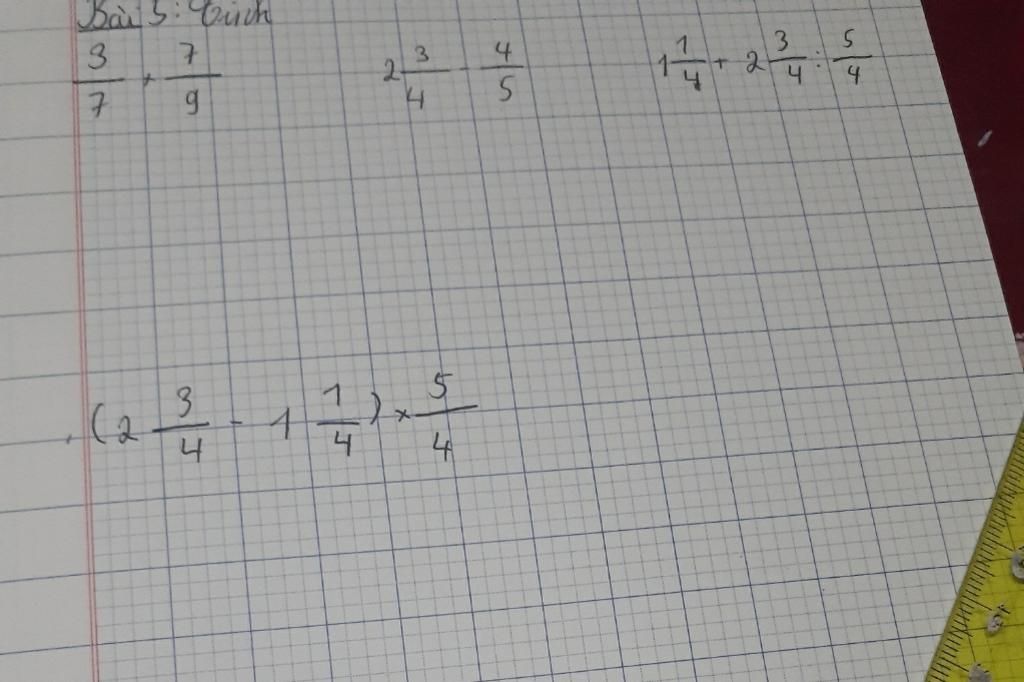 Bài 5: Tính
3/7 + 7/9 2 3/4 - 4/5 1 1/4 + 2 3/4 : 5/4
(2 3/4 - 1 1/4) × 5/4